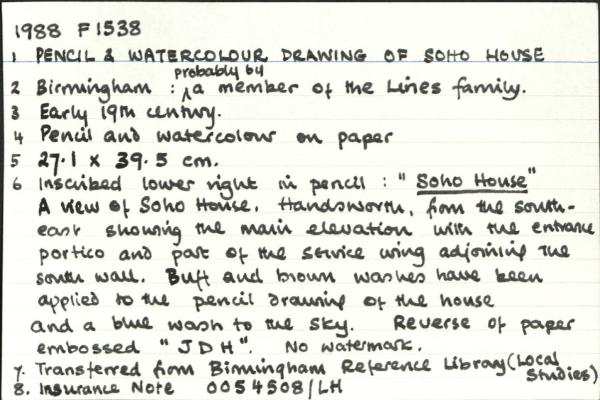 1988 F1538
1 PENCIL & WATERCOLOUR DRAWING OF SOHO HOUSE
2 Birmingham : probably by a member of the Lines family.
3 Early 19th century.
4 Pencil and watercolour on paper
5 27.1 x 39.5 cm.
6 Inscribed lower right in pencil : "Soho House"
A view of Soho House, Handsworth, from the south-
east showing the main elevation with the entrance
portico and part of the service wing adjoining the
south wall. Buff and brown washes have been
applied to the pencil drawing of the house
and a blue wash to the sky. Reverse of paper
embossed "JDH". No watermark.
7. Transferred from Birmingham Reference Library (Local Studies)
8. Insurance Note 0054508/LH